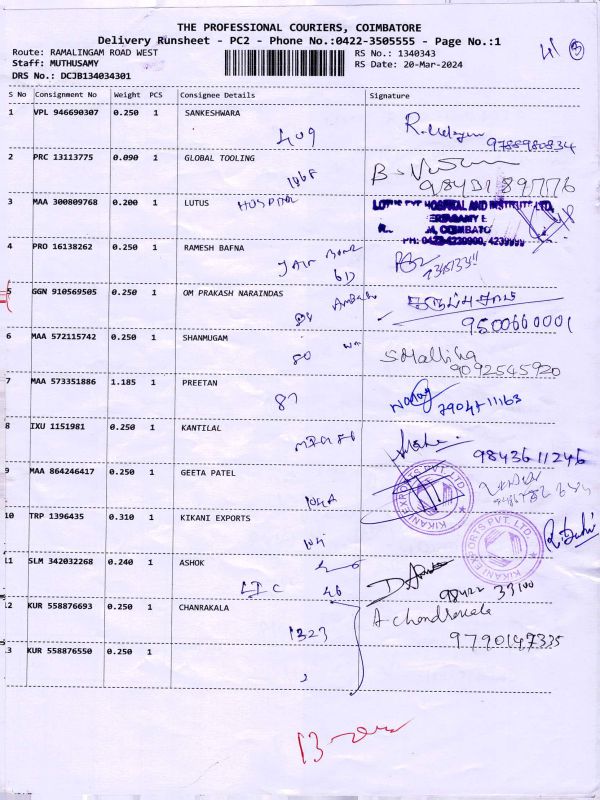 THE PROFESSIONAL COURIERS, COIMBATORE
Delivery Runsheet - PC2 - Phone No.:0422-3505555 - Page No.:1
Route: RAMALINGAM ROAD WEST RS No.: 1340343
Staff: MUTHUSAMY RS Date: 20-Mar-2024
DRS No.: DCJB134034301
S No Consignment No Weight PCS Consignee Details Signature
1 VPL 946690307 0.250 1 SANKESHWARA
409
2 PRC 13113775 0.090 1 GLOBAL TOOLING
186F
3 MAA 300809768 0.200 1 LUTUS HOSPITAL
LOTUS EYE HOSPITAL AND INSTITUTE LTD.
PH: 0422-4239900, 4239999
4 PRO 16138262 0.250 1 RAMESH BAFNA
5 GGN 910569505 0.250 1 OM PRAKASH NARAINDAS
9500660001
6 MAA 572115742 0.250 1 SHANMUGAM
80
S Mallika
9092545920
7 MAA 573351886 1.185 1 PREETAN
87
8 IXU 1151981 0.250 1 KANTILAL
9843611246
9 MAA 864246417 0.250 1 GEETA PATEL
104A
KIKANI EXPORTS PVT. LTD.
10 TRP 1396435 0.310 1 KIKANI EXPORTS
104
KIKANI EXPORTS PVT. LTD.
11 SLM 342032268 0.240 1 ASHOK
LIC 46
98422 33100
12 KUR 558876693 0.250 1 CHANRAKALA
1323
A Chandrakala
9790147335
13 KUR 558876550 0.250 1
13